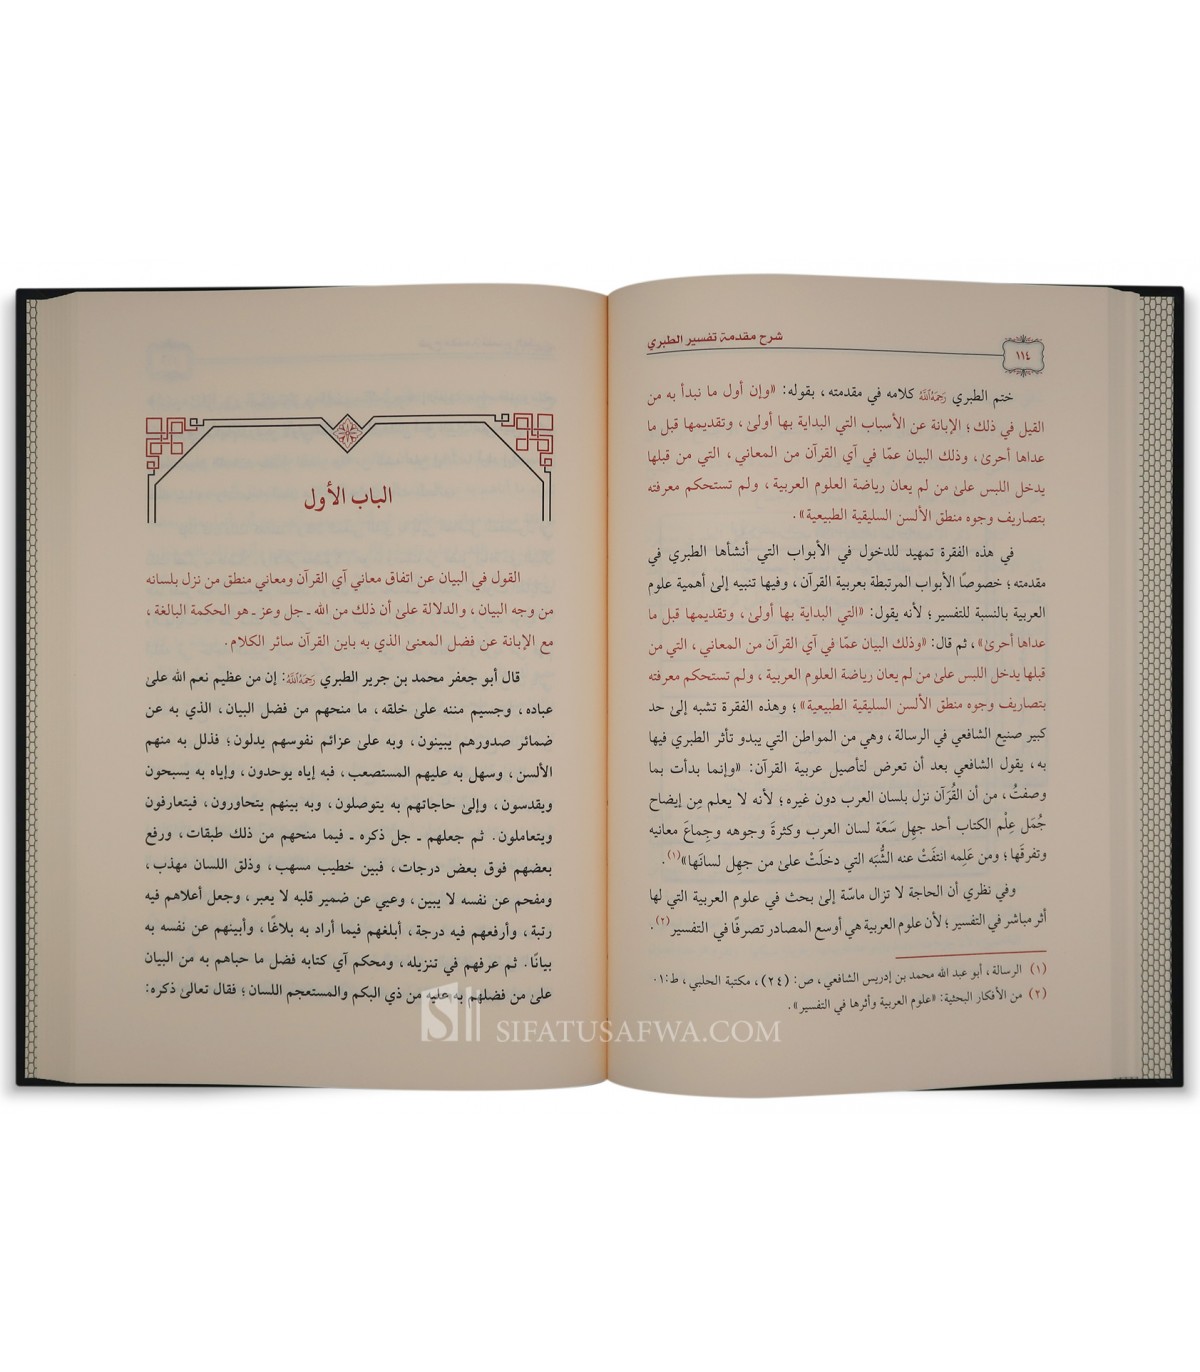 ١١٤
شرح مقدمة تفسير الطبري
ختم الطبري رَحِمَهُ ٱللَّهُ كلامه في مقدمته، بقوله: «وإن أول ما نبدأ به من
القيل في ذلك؛ الإبانة عن الأسباب التي البداية بها أولىٰ، وتقديمها قبل ما
عداها أحرىٰ، وذلك البيان عمّا في آي القرآن من المعاني، التي من قبلها
يدخل اللبس علىٰ من لم يعان رياضة العلوم العربية، ولم تستحكم معرفته
بتصاريف وجوه منطق الألسن السليقية الطبيعية».
في هذه الفقرة تمهيد للدخول في الأبواب التي أنشأها الطبري في
مقدمته؛ خصوصًا الأبواب المرتبطة بعربية القرآن، وفيها تنبيه إلىٰ أهمية علوم
العربية بالنسبة للتفسير؛ لأنه يقول: «التي البداية بها أولىٰ، وتقديمها قبل ما
عداها أحرىٰ»، ثم قال: «وذلك البيان عمّا في آي القرآن من المعاني، التي من
قبلها يدخل اللبس علىٰ من لم يعان رياضة العلوم العربية، ولم تستحكم معرفته
بتصاريف وجوه منطق الألسن السليقية الطبيعية»؛ وهذه الفقرة تشبه إلىٰ حد
كبير صنيع الشافعي في الرسالة، وهي من المواطن التي يبدو تأثر الطبري فيها
به، يقول الشافعي بعد أن تعرض لتأصيل عربية القرآن: «وإنما بدأت بما
وصفتُ، من أن القُرَآن نزل بلسان العرب دون غيره؛ لأنه لا يعلم مِن إيضاح
جُمَل عِلْم الكتاب أحد جهِل سَعَة لسان العرب وكثرةَ وجوهه وجِماعَ معانيه
وتفرقَها؛ ومن عَلِمه انتفَتْ عنه الشُّبَه التي دخلَتْ علىٰ من جهِل لسانَها»(١).
وفي نظري أن الحاجة لا تزال ماسّة إلىٰ بحث في علوم العربية التي لها
أثر مباشر في التفسير؛ لأن علوم العربية هي أوسع المصادر تصرفًا في التفسير(٢).
(١) الرسالة، أبو عبد الله محمد بن إدريس الشافعي، ص: (٢٤)، مكتبة الحلبي، ط:٠١
(٢) من الأفكار البحثية: «علوم العربية وأثرها في التفسير».
الباب الأول
القول في البيان عن اتفاق معاني آي القرآن ومعاني منطق من نزل بلسانه
من وجه البيان، والدلالة علىٰ أن ذلك من الله ـ جل وعز ـ هو الحكمة البالغة،
مع الإبانة عن فضل المعنىٰ الذي به باين القرآن سائر الكلام.
قال أبو جعفر محمد بن جرير الطبري رَحِمَهُ ٱللَّهُ: إن من عظيم نعم الله علىٰ
عباده، وجسيم مننه علىٰ خلقه، ما منحهم من فضل البيان، الذي به عن
ضمائر صدورهم يبينون، وبه علىٰ عزائم نفوسهم يدلون؛ فذلل به منهم
الألسن، وسهل به عليهم المستصعب، فبه إياه يوحدون، وإياه به يسبحون
ويقدسون، وإلىٰ حاجاتهم به يتوصلون، وبه بينهم يتحاورون، فيتعارفون
ويتعاملون. ثم جعلهم ـ جل ذكره ـ فيما منحهم من ذلك طبقات، ورفع
بعضهم فوق بعض درجات، فبين خطيب مسهب، وذلق اللسان مهذب،
ومفحم عن نفسه لا يبين، وعيي عن ضمير قلبه لا يعبر، وجعل أعلاهم فيه
رتبة، وأرفعهم فيه درجة، أبلغهم فيما أراد به بلاغًا، وأبينهم عن نفسه به
بيانًا. ثم عرفهم في تنزيله، ومحكم آي كتابه فضل ما حباهم به من البيان
علىٰ من فضلهم به عليه من ذي البكم والمستعجم اللسان؛ فقال تعالىٰ ذكره:
SIFATUSAFWA.COM